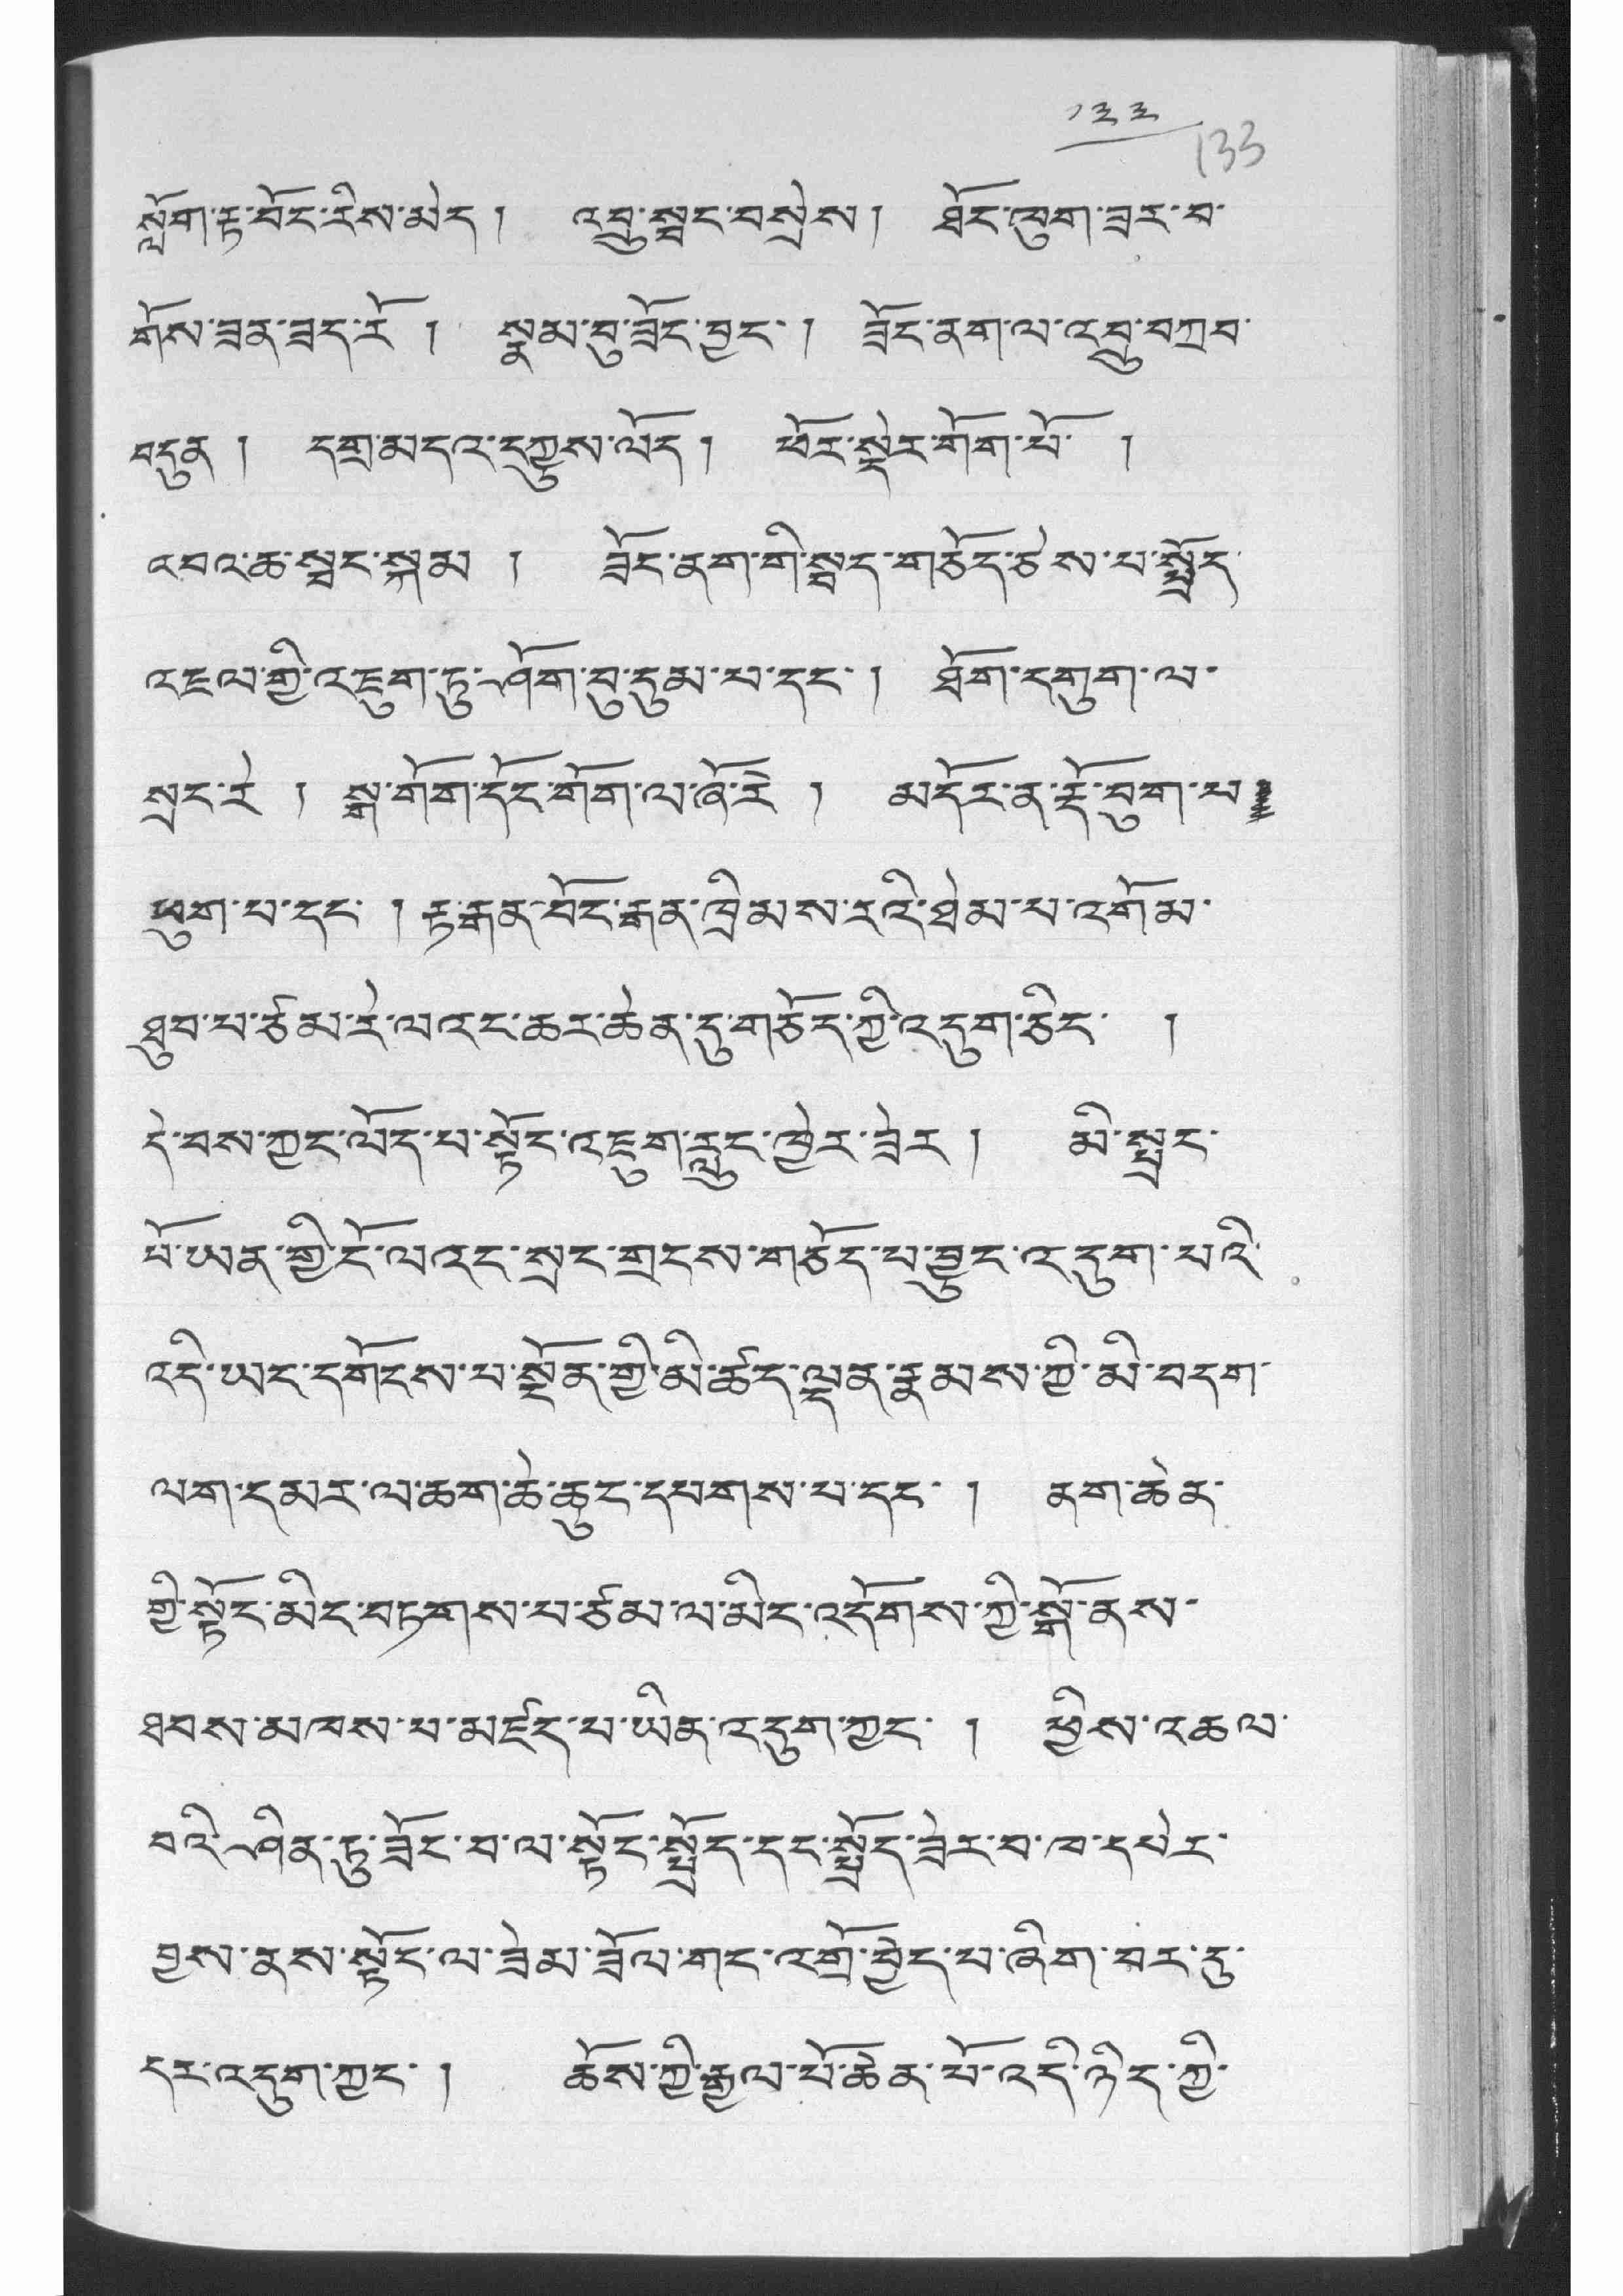 ༡༣༣
133
སློག་རྟ་བོང་རིས་མེད། འབྲུ་སྦྲང་བསྲེས། ཐོང་ཁུག་ཟར་བ་
གོས་ཟན་ཟད་རོ། སྣམ་བུ་ཟོང་བྱང་། ཟོང་ནག་ལ་འབྲུ་བཀྲབ་
བདུན། དགྲ་མདའ་དཀྱུས་ལོད། ཕོར་སྡེར་གོག་པོ་།
འབའ་ཆ་སྦང་སྐམ། ཟོང་ནག་གི་སྦྲད་གཅོད་ཅེས་པ་སྤྲོད་
འཇལ་གྱི་འཇུག་ཏུ་ཤོག་བུ་དུམ་པ་དང་། ཐོག་དགུག་ལ་
སྲང་རེ། སྒ་གོག་དོང་གོག་ལ་ཞོ་རེ། མདོར་ན་རྡོ་བུག་པ
ཕུག་པ་དང་། རྟ་རྒན་བོང་རྒན་ཁྲིམས་རའི་ཐེམ་པ་འགོམ་
ཐུབ་པ་ཙམ་རེ་ལའང་ཆར་ཆེན་དུ་གཅོད་ཀྱི་འདུག་ཅིང་།
དེ་བས་ཀྱང་ལོད་པ་སྟོང་འཇུག་རླུང་ཁྱེར་ཟེར། མི་སྤྲང་
པོ་ཡན་གྱི་ངོ་ལའང་སྲང་གྲངས་གཅོད་པ་བྱུང་འདུག་པའི་
འདི་ཡང་དགོངས་པ་སྔོན་གྱི་མི་ཚད་ལྡན་རྣམས་ཀྱི་མི་བདག་
ལག་དམར་ལ་ཆག་ཆེ་ཆུང་དཔགས་པ་དང་། ནག་ཆེན་
གྱི་སྟོང་མིང་བཏགས་པ་ཙམ་ལ་མིང་འདོགས་ཀྱི་སྒོ་ནས་
ཐབས་མཁས་པ་མཛད་པ་ཡིན་འདུག་ཀྱང་། ཕྱིས་འཆལ་
བའི་ཤིན་ཏུ་ཟོང་བ་ལ་སྟོང་སྤྲོད་དང་སྤྲོད་ཟེར་བ་ཁ་དཔེར་
བྱས་ནས་སྟོང་ལ་ཟེམ་ཟོལ་གང་འགྲོ་བྱེད་པ་ཞིག་བར་དུ་
དར་འདུག་ཀྱང་། ཆོས་ཀྱི་རྒྱལ་པོ་ཆེན་པོ་འདི་ཉིད་ཀྱི་